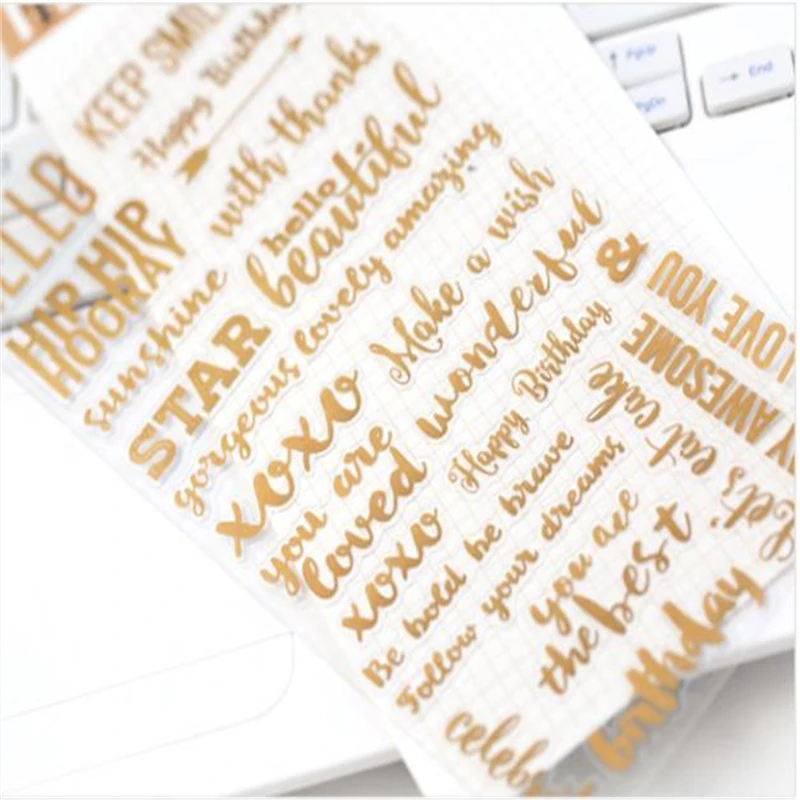 KEEP SMIL
Happy Birthday
with thanks
hello
beautiful
ELLO
HIP HIP
HOORAY
sunshine
STAR
gorgeous lovely amazing
xoxo
Make a wish
wonderful
&
you are
loved
Happy Birthday
xoxo
Be bold be brave
Follow your dreams
you are
the best
LOVE YOU
AWESOME
Let's eat cake
celeb
birthday
PgUp
PgDn
End